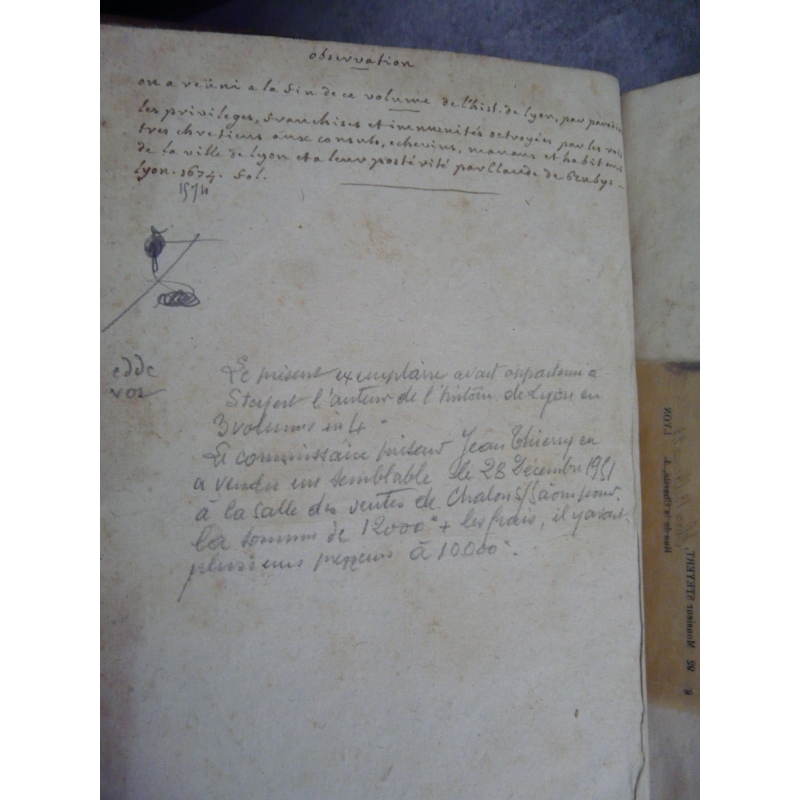 observation
on a reüni a la fin de ce volume de l'hist. de Lyon, par paradin
les privileges, franchises et immunités octroyées par les rois
tres chretiens aux consuls, echevins, manans et habitans
de la ville de Lyon et a leur postérité par Claude de Rubys -
Lyon. 1674. fol.
1574
edde
vor
Le présent exemplaire avait appartenu a
Steyert l'auteur de l'histoire de Lyon en
3 volumes in 4°
Le commissaire priseur Jean Thierry en
a vendu un semblable le 28 Decembre 1951
à la salle des ventes de Chalon s/ Saône pour
la somme de 12000 + les frais, il y avait
plusieurs preneurs à 10000.
Monsieur STEYERT,
LYON